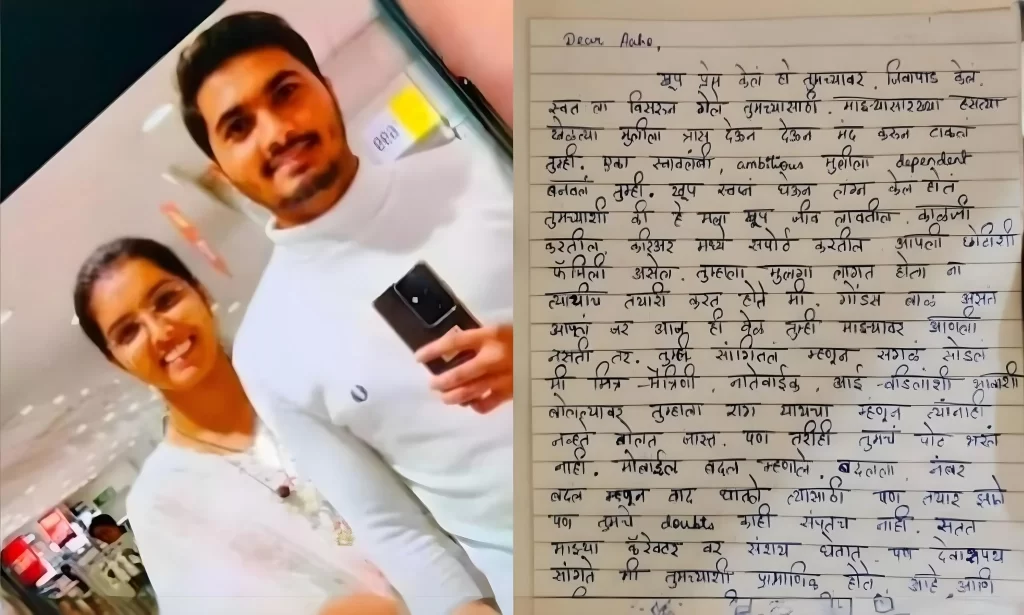 Dear Aaho,
खूप प्रेम केलं हो तुमच्यावर, जिवापाड केलं.
स्वतः ला विसरुन गेले तुमच्यासाठी. माझ्यासारख्या हसत्या
खेळत्या मुलीला त्रास देऊन देऊन मंद करुन टाकलं
तुम्ही. एका स्वावलंबी, ambitious मुलीला dependent
बनवलं तुम्ही. खूप स्वप्नं घेऊन लग्न केलं होतं
तुमच्याशी की हे मला खूप जीव लावतील, काळजी
करतील, करिअर मध्ये सपोर्ट करतील आपली छोटीशी
फॅमिली असेल. तुम्हाला मुलगा लागत होता ना
त्याचीच तयारी करत होते मी. गोंडस बाळ असतं
आपलं जर आज ही वेळ तुम्ही माझ्यावर आणली
नसती तर. तुम्ही सांगितलं म्हणून सगळं सोडलं
मी मित्र-मैत्रिणी, नातेवाईक, आई-वडिलांशी भावाशी
बोलल्यावर तुम्हाला राग यायचा म्हणून त्यांनाही
नव्हते बोलत जास्त. पण तरीही तुमचं पोट भरलं
नाही. मोबाईल बदल म्हणाले, बदलला नंबर
बदल म्हणून वाद घातले त्यासाठी पण तयार झाले
पण तुमचे doubts काही संपतच नाही. सतत
माझ्या कॅरेक्टर वर संशय घेतात पण देवाशपथ
सांगते मी तुमच्याशी प्रामाणिक होते आहे आणि